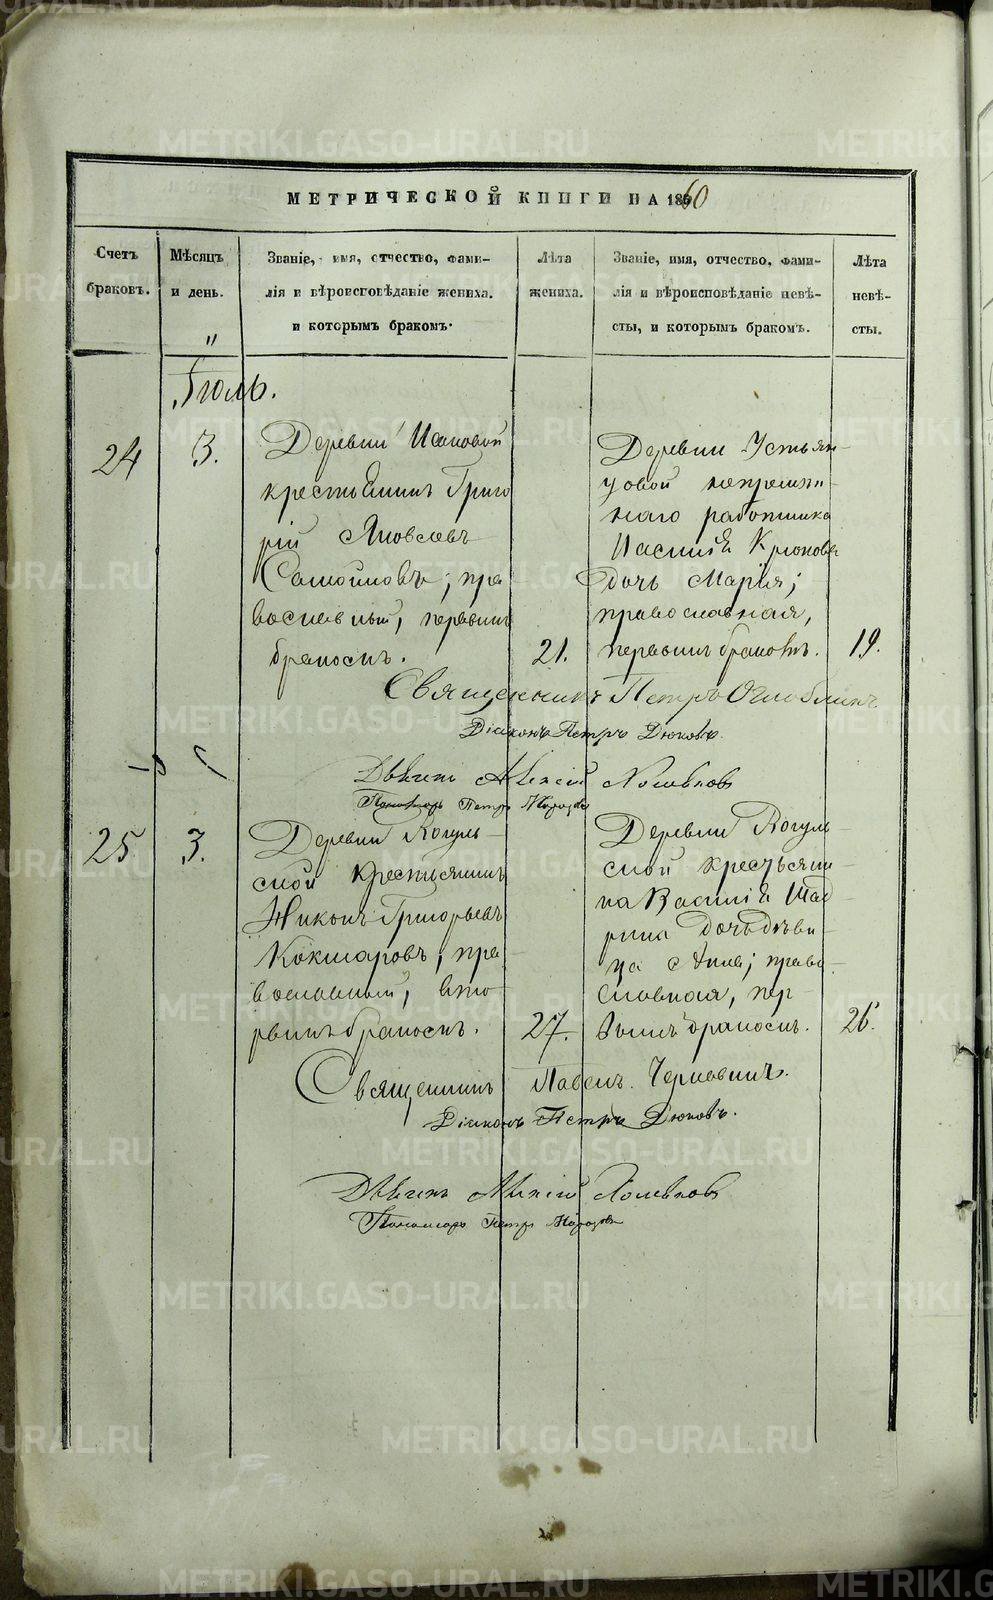 МЕТРИЧЕСКОЙ КНИГИ НА 1860
Счетъ
браковъ.
Мѣсяцъ
и день.
Званіе, имя, отчество, фами-
лія и вѣроисповѣданіе жениха.
и которымъ бракомъ.
Лѣта
жениха.
Званіе, имя, отчество, фами-
лія и вѣроисповѣданіе невѣ-
сты, и которымъ бракомъ.
Лѣта
невѣ-
сты.
Іюль.
24
3.
Деревни Исаковой
крестьянинъ Григо
рій Яковлевъ
Самойловъ; пра
вославный, первымъ
бракомъ.
21.
Деревни Устьян-
цовой непремѣн-
наго работника
Василія Крюкова
дочь Марія;
православная,
первымъ бракомъ.
19.
Священникъ Петръ Оглоблинъ
Діаконъ Петръ Дюковъ.
Дьячекъ Алексій
Пономарь Петръ
25
3.
Деревни Когуль-
ской крестьянинъ
Никонъ Григорьевъ
Кокшаровъ; пра
вославный, вто
рымъ бракомъ.
27.
Деревни Вогуль-
ской крестьяни-
на Василія Шад
рина дочь дѣви-
ца Анна; право-
славная, пер-
вымъ бракомъ.
26.
Священникъ Павелъ
Діаконъ Петръ Дюковъ.
Дьячекъ Алексій
Пономарь Петръ
METRIKI.GASO-URAL.RU